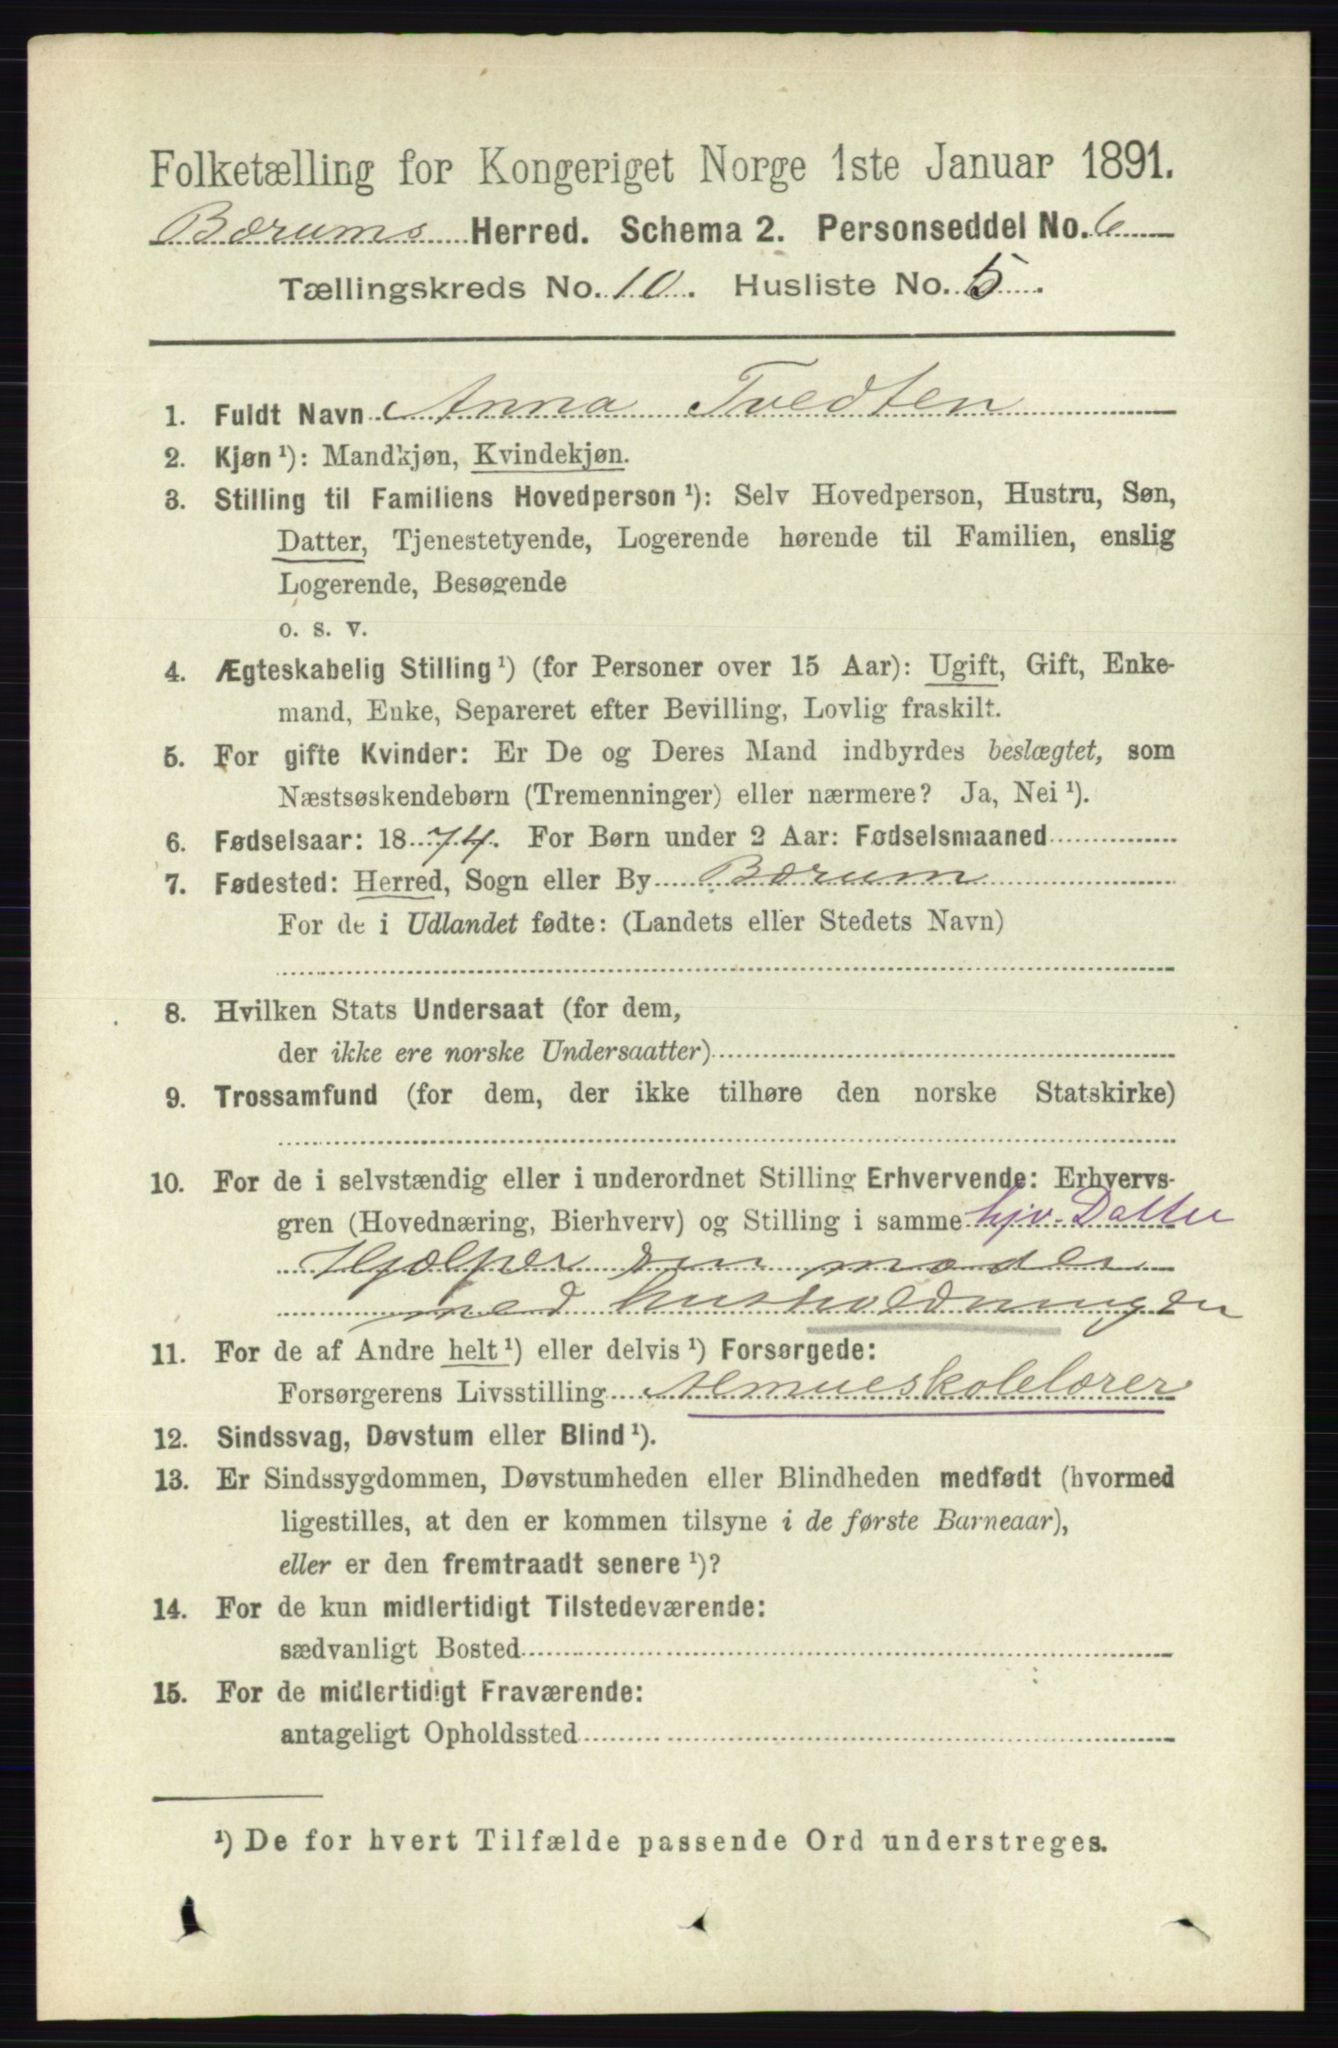 Folketælling for Kongeriget Norge 1ste Januar 1891.
Bærums Herred. Schema 2. Personseddel No. 6
Tællingskreds No. 10. Husliste No. 5.
1. Fuldt Navn Anna Tvedten
2. Kjøn ¹): Mandkjøn, Kvindekjøn.
3. Stilling til Familiens Hovedperson ¹): Selv Hovedperson, Hustru, Søn,
Datter, Tjenestetyende, Logerende hørende til Familien, enslig
Logerende, Besøgende
o. s. v.
4. Ægteskabelig Stilling ¹) (for Personer over 15 Aar): Ugift, Gift, Enke-
mand, Enke, Separeret efter Bevilling, Lovlig fraskilt.
5. For gifte Kvinder: Er De og Deres Mand indbyrdes beslægtet, som
Næstsøskendebørn (Tremenninger) eller nærmere? Ja, Nei ¹).
6. Fødselsaar: 1874. For Børn under 2 Aar: Fødselsmaaned
7. Fødested: Herred, Sogn eller By Bærum
For de i Udlandet fødte: (Landets eller Stedets Navn)
8. Hvilken Stats Undersaat (for dem,
der ikke ere norske Undersaatter)
9. Trossamfund (for dem, der ikke tilhøre den norske Statskirke)
10. For de i selvstændig eller i underordnet Stilling Erhvervende: Erhvervs-
gren (Hovednæring, Bierhverv) og Stilling i samme hjv. Datter
Hjælper sin moder
med husholdningen
11. For de af Andre helt ¹) eller delvis ¹) Forsørgede:
Forsørgerens Livsstilling Almueskolelærer
12. Sindssvag, Døvstum eller Blind ¹).
13. Er Sindssygdommen, Døvstumheden eller Blindheden medfødt (hvormed
ligestilles, at den er kommen tilsyne i de første Barneaar),
eller er den fremtraadt senere ¹)?
14. For de kun midlertidigt Tilstedeværende:
sædvanligt Bosted
15. For de midlertidigt Fraværende:
antageligt Opholdssted
¹) De for hvert Tilfælde passende Ord understreges.